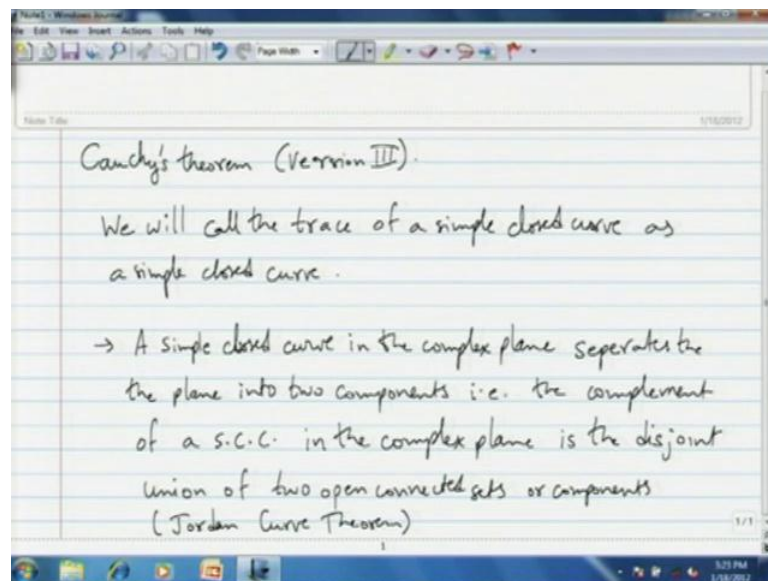 Note1 - Windows Journal
File Edit View Insert Actions Tools Help
Page Width
Note Title
1/18/2012
Cauchy's theorem (Version III).
We will call the trace of a simple closed curve as
a simple closed curve.
→ A simple closed curve in the complex plane seperates the
the plane into two components i.e. the complement
of a s.c.c. in the complex plane is the disjoint
union of two open connected sets or components
(Jordan Curve Theorem)
1/1
1
3:23 PM
1/18/2012